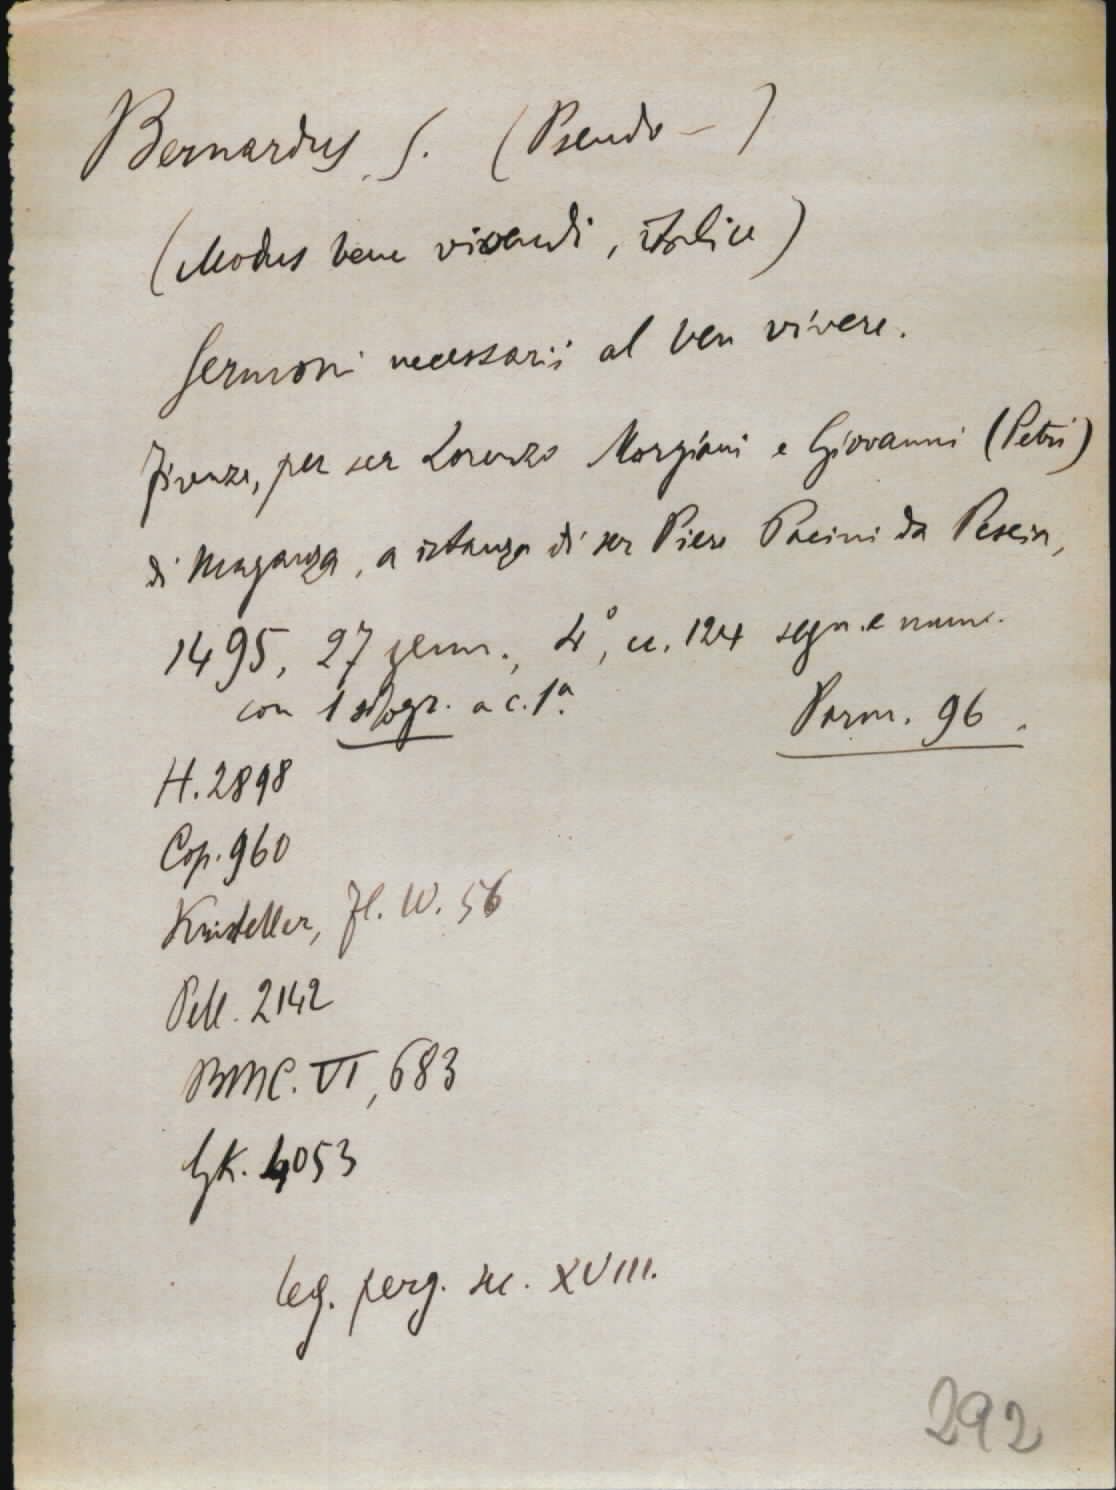 Bernardus, S. (Pseudo -)
(Modus bene vivendi, italice)
Sermoni necessarii al ben vivere.
Firenze, per ser Lorenzo Morgiani e Giovanni (Petri)
di Maganza, a istanza di ser Piero Pacini da Pescia,
1495, 27 genn., 4°, cc. 124 segn. e num.
con 1 silogr. a c. 1ª.
Parm. 96.
H. 2898
Cop. 960
Kristeller, Fl. W. 56
Pell. 2142
BMC. VI, 683
GK. 4053
leg. perg. sec. XVIII.
292